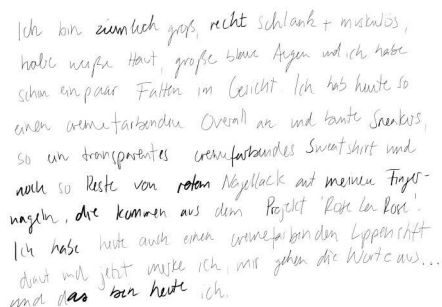 Ich bin ziemlich groß, recht schlank + muskulös,
habe weiße Haut, große blaue Augen und ich habe
schon ein paar Falten im Gesicht. Ich hab heute so
einen cremefarbenden Overall an und bunte Sneakers,
so ein transparentes cremefarbendes Sweatshirt und
noch so Reste von rotem Nagellack auf meinen Finger-
nägeln, die kommen aus dem Projekt 'Rose La Rose'.
Ich habe heute auch einen cremefarbinden Lippenstift
drauf und jetzt merke ich, mir gehen die Worte aus...
und das bin heute ich.